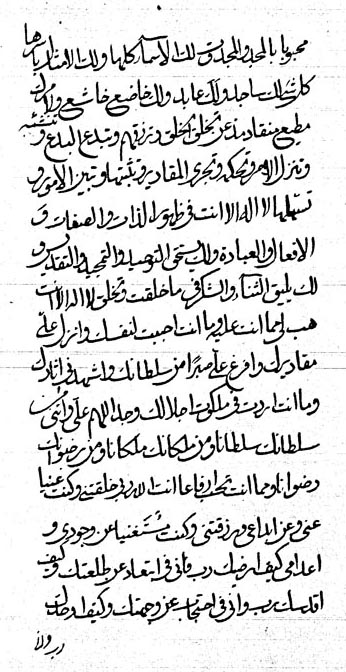 محبوبا بالمجد والمجد وتلك الاسماء كلها ولك الامثال بامرها
كل شئ لك ساجد ولك عابد ولك خاضع خاشع ولامرك
مطيع منقاد مذعن تخلق الخلق وترزقهم وتبدع البدع وتنشئه
وتنزل الامر وتحكمه وتجري المقادير وتثبتها وتبين الامور و
تسهلها لا اله الا انت في ظهور الذات والصفات و
الافعال والعبادة ولك يستحق التوحيد والتمجيد والتقديس و
لك يليق الثناء والشكر في ما خلقت وتخلق لا اله الا انت
هب لي مما انت عليه وما انت احببت لنفسك وانزل علي
مقاديرك وافرغ علي صبرا من سلطانك واشهدني اياتك
وما انت اردت في ملكوت اجلالك وحد اللهم علي وائتني من
سلطانك سلطانا ومن ملكانك ملكانا ومن رضوانك
رضوانا ومما انت تحب رفاعا انت الا رب خلقتني وكنت غنيا
عني وعن ابداعي ورزقتني وكنت مستغنيا عن وجودي و
اعدامي كيف ارضيك رب واني في ابتعاد عن طلعتك وكيف
اقدسك رب واني في احتجاب عن وجهتك وكيف اوحدك
رب ولا